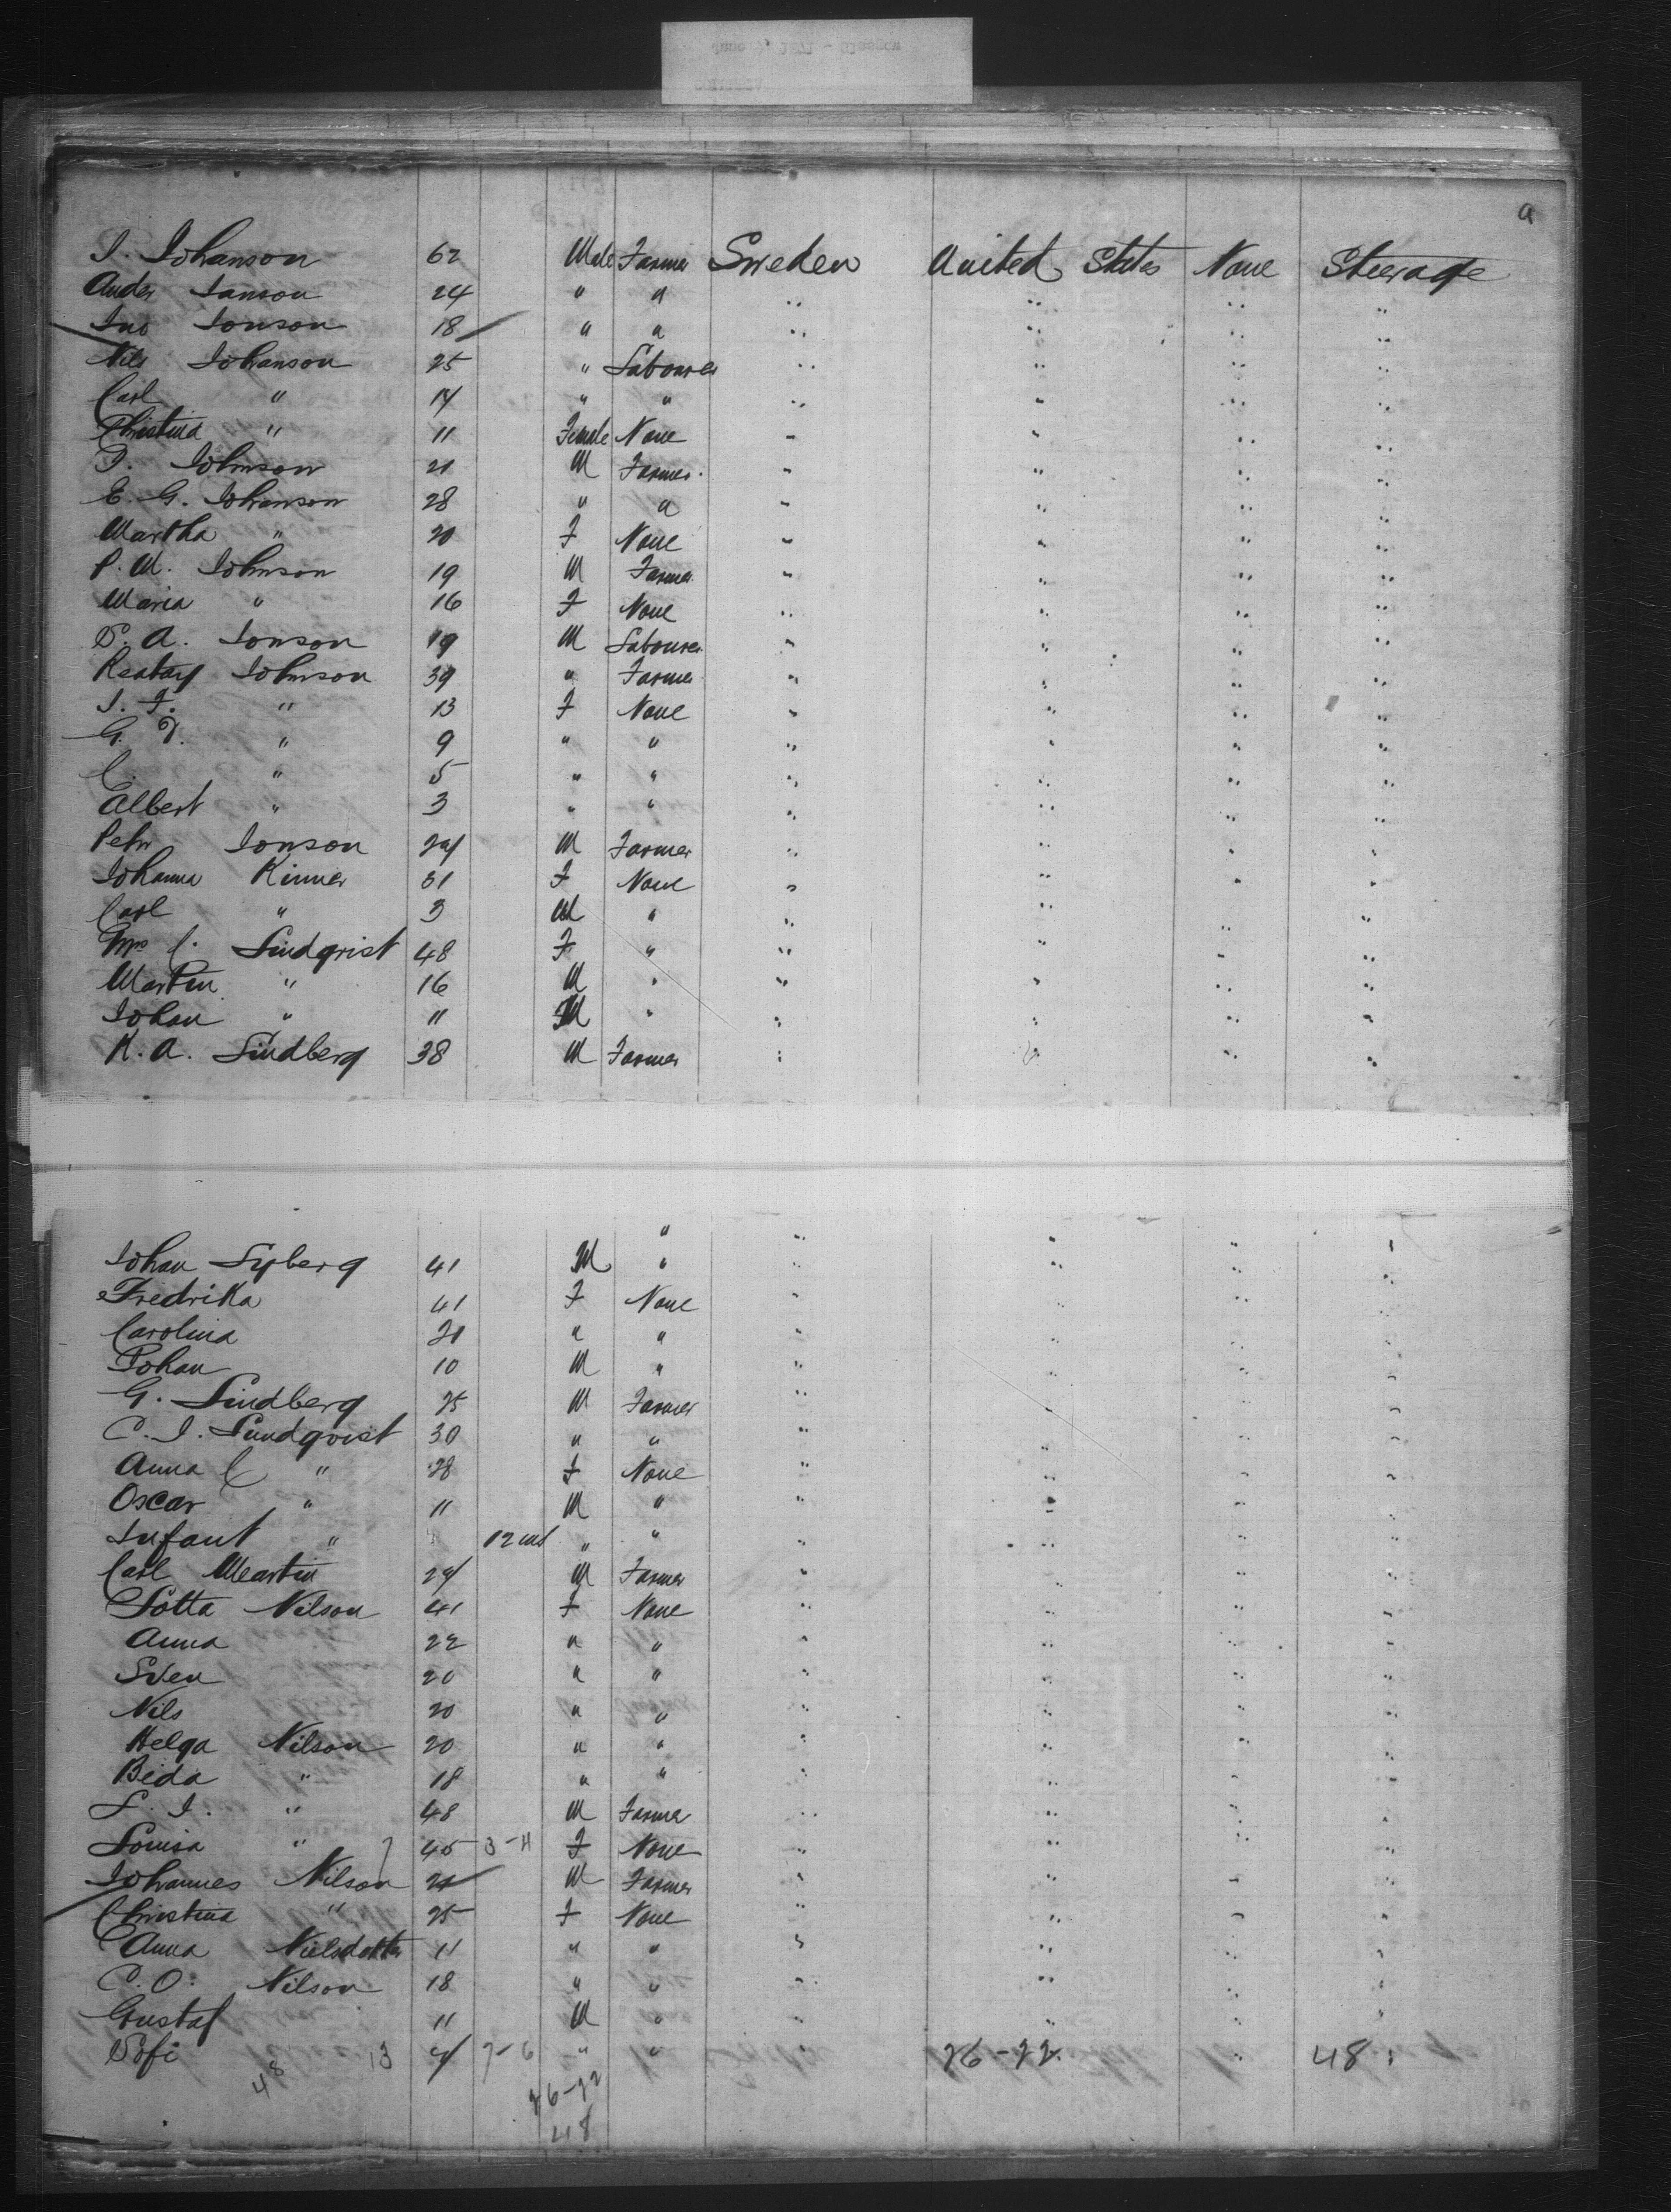 a
J. Johanson 62 Male Farmer Sweden United States None Steerage
Ander Janson 24 " " " " " "
Jno Jonson 18 " " " " " "
Nils Johanson 25 " Labourer " " " "
Carl " 14 " " " " " "
Christina " 11 Female None " " " "
P. Johnson 21 M Farmer " " " "
E. G. Johanson 28 " " " " " "
Martha " 20 F None " " " "
P. M. Johnson 19 M Farmer " " " "
Maria " 16 F None " " " "
P. A. Jonson 19 M Labourer " " " "
Johnson 39 " Farmer " " " "
J. F. " 13 F None " " " "
G. " 9 " " " " " "
C. " 5 " " " " " "
Albert " 3 " " " " " "
Pehr Jonson 24 M Farmer " " " "
Johanna Kinner 31 F None " " " "
Carl " 3 M " " " " "
Mrs C. Lindqrist 48 F " " " " "
Martin " 16 M " " " " "
Johan " 11 M " " " " "
K. A. Lindberg 38 M Farmer " " " "
" " " " "
Johan Lyberg 41 M " " " " "
Fredrika 41 F None " " " "
Carolina 21 " " " " " "
Johan 10 M " " " " "
G. Lindberg 25 M Farmer " " " "
C. J. Lundqvist 30 " " " " " "
Anna C " 28 F None " " " "
Oscar " 11 M " " " " "
Infant " 12 " " " " " "
Carl Martin 24 M Farmer " " " "
Lotta Nilson 41 F None " " " "
Anna 22 " " " " " "
Sven 20 " " " " " "
Nils 20 " " " " " "
Helga Nilson 20 " " " " " "
Beda " 18 " " " " " "
L. J. " 48 M Farmer " " " "
Louisa " 7 45 3-4 F None " " " "
Johannes Nilson 21 M Farmer " " " "
Christina " 25 F None " " " "
Anna Nielsdotter 11 " " " " " "
C. O. Nilson 18 " " " " " "
Gustaf 11 M " " " " "
Sofi 13 4 7-6 " " " 26-22 " 48
48 26-22
48